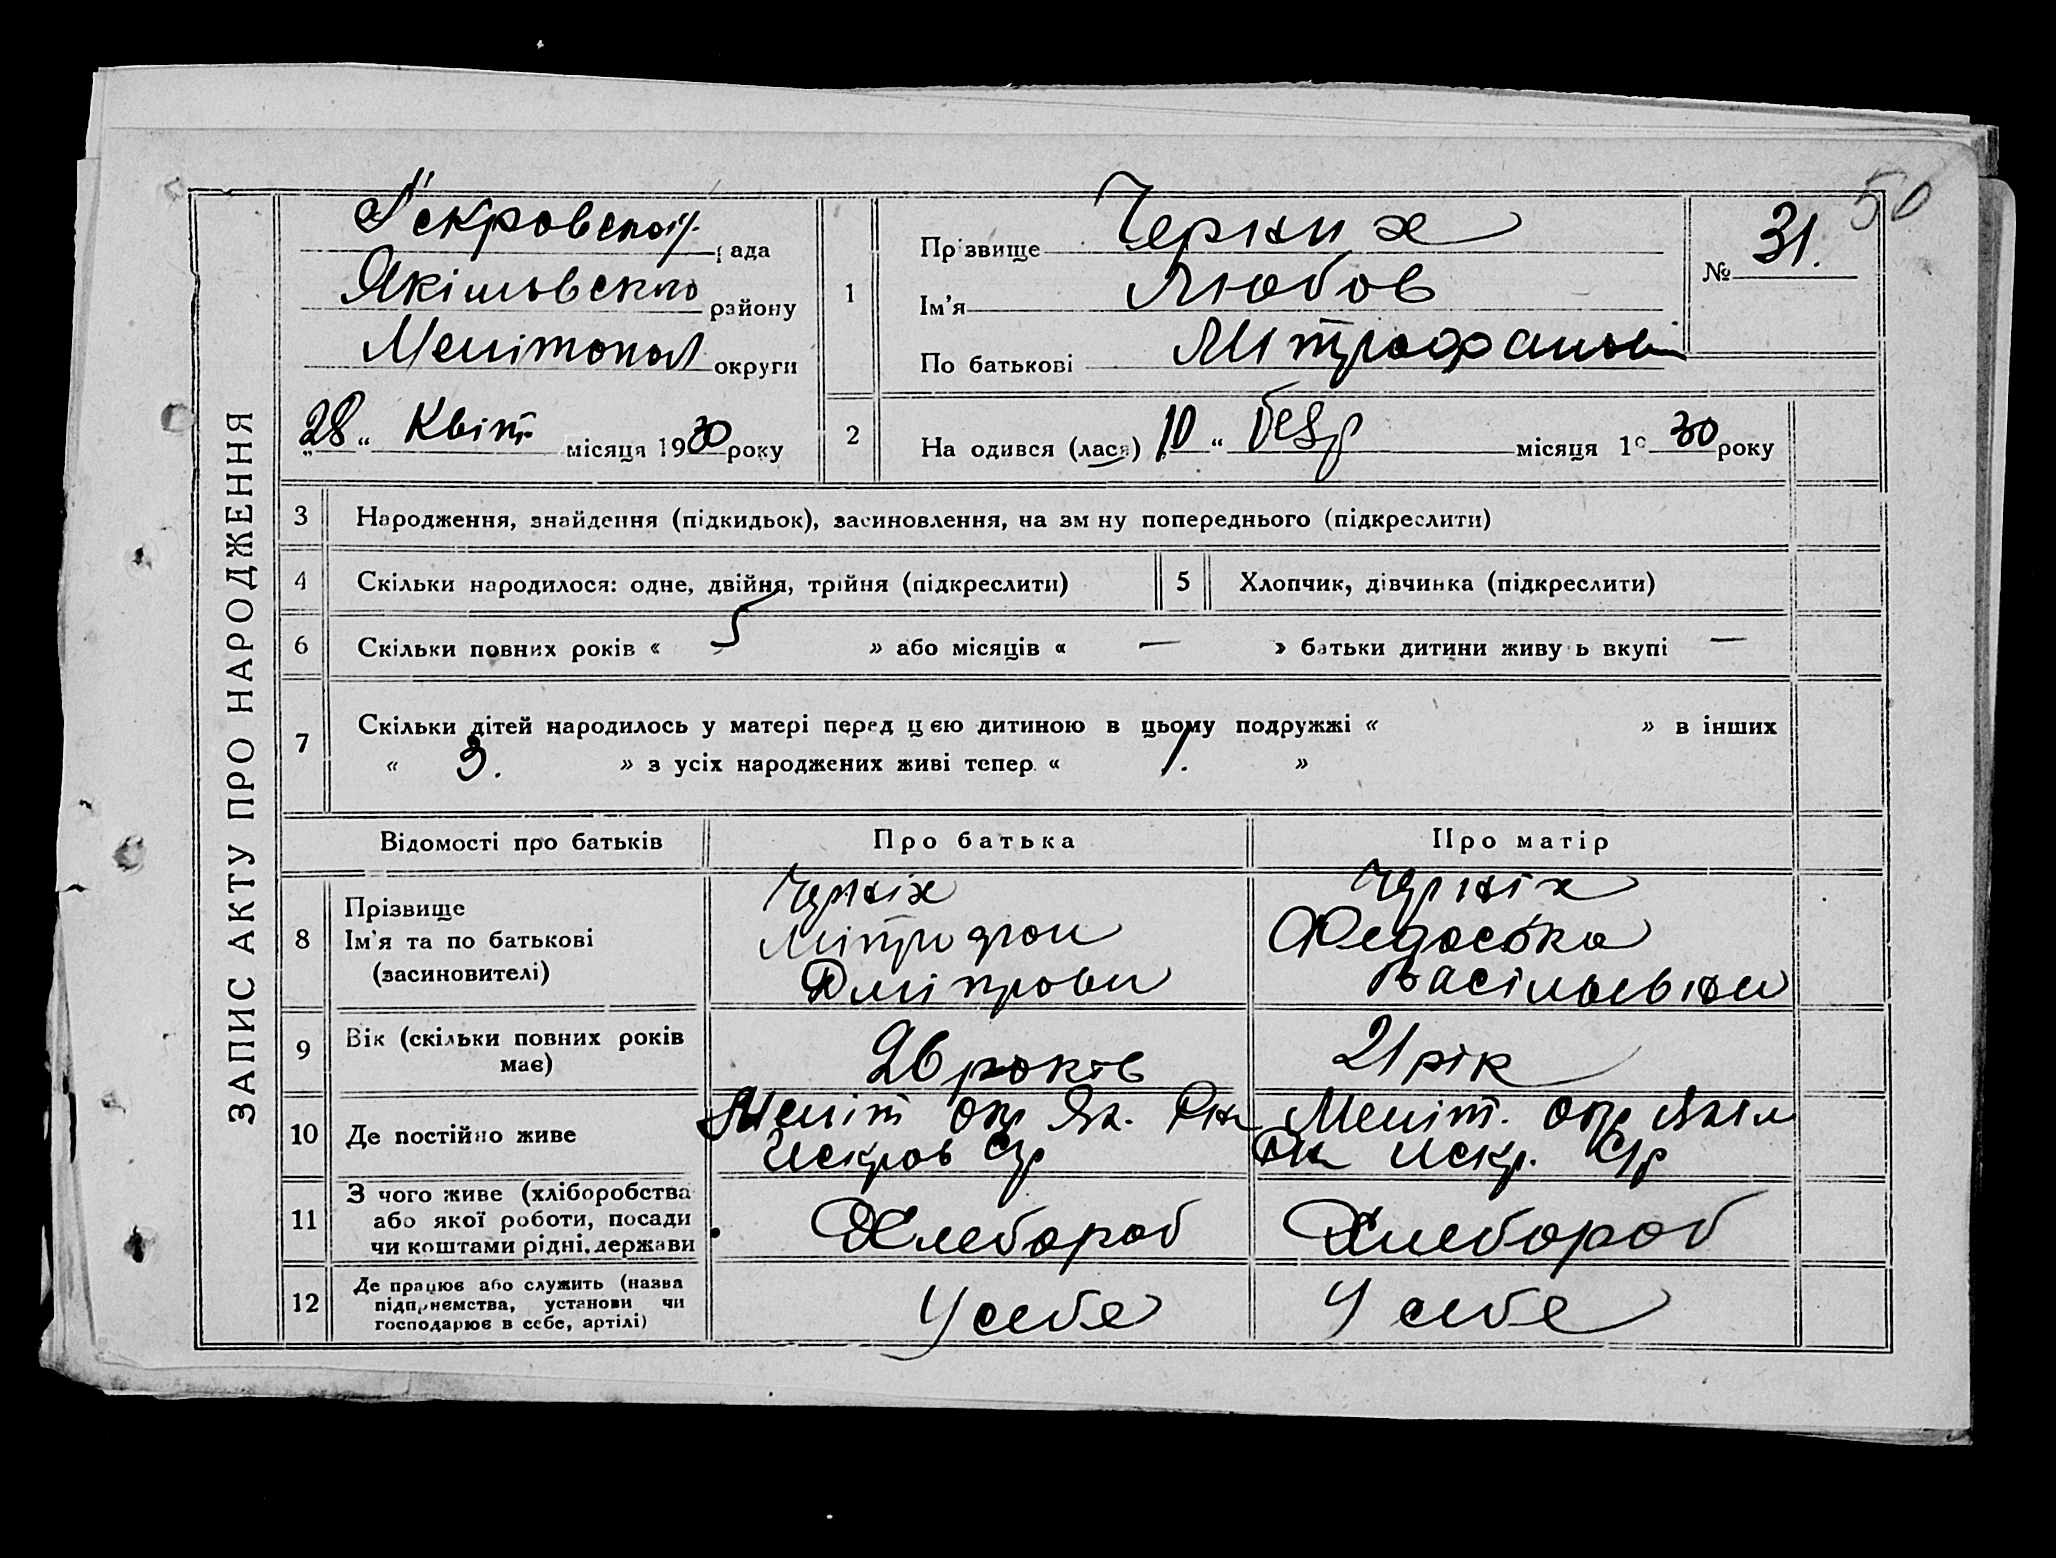 50
ЗАПИС АКТУ ПРО НАРОДЖЕННЯ
рада
Якімовского району
Меліtопол округи
„28“ Квіт місяця 1930 року
1
Прізвище Черних
Ім'я Любов
По батькові Мітрофановн
№ 31.
2
На одився (лася) 10 “ місяця 1930 року
3 Народження, знайдення (підкидьок), засиновлення, на зміну попереднього (підкреслити)
4 Скільки народилося: одне, двійня, трійня (підкреслити)
5 Хлопчик, дівчинка (підкреслити)
6 Скільки повних років « 5 » або місяців « — » батьки дитини живуть вкупі —
7 Скільки дітей народилось у матері перед цією дитиною в цьому подружжі « » в інших
« 3. » з усіх народжених живі тепер « 1. »
Відомості про батьків Про батька Про матір
8 Прізвище
Ім'я та по батькові
(засиновителі)
Черніх
Мітрофан
Дмітрови
Черніх
Федоська
Васільевни
9 Вік (скільки повних років
має)
26 років
21 рік
10 Де постійно живе
Меліт окр Як. Рн
Искров С/р
Меліт. окр Яким
Рн Искр. С/р
11 З чого живе (хліборобства
або якої роботи, посади
чи коштами рідні, держави
Хлебороб
Хлебороб
12 Де працює або служить (назва
підприємства, установи чи
господарює в себе, артілі)
У себе
У себе